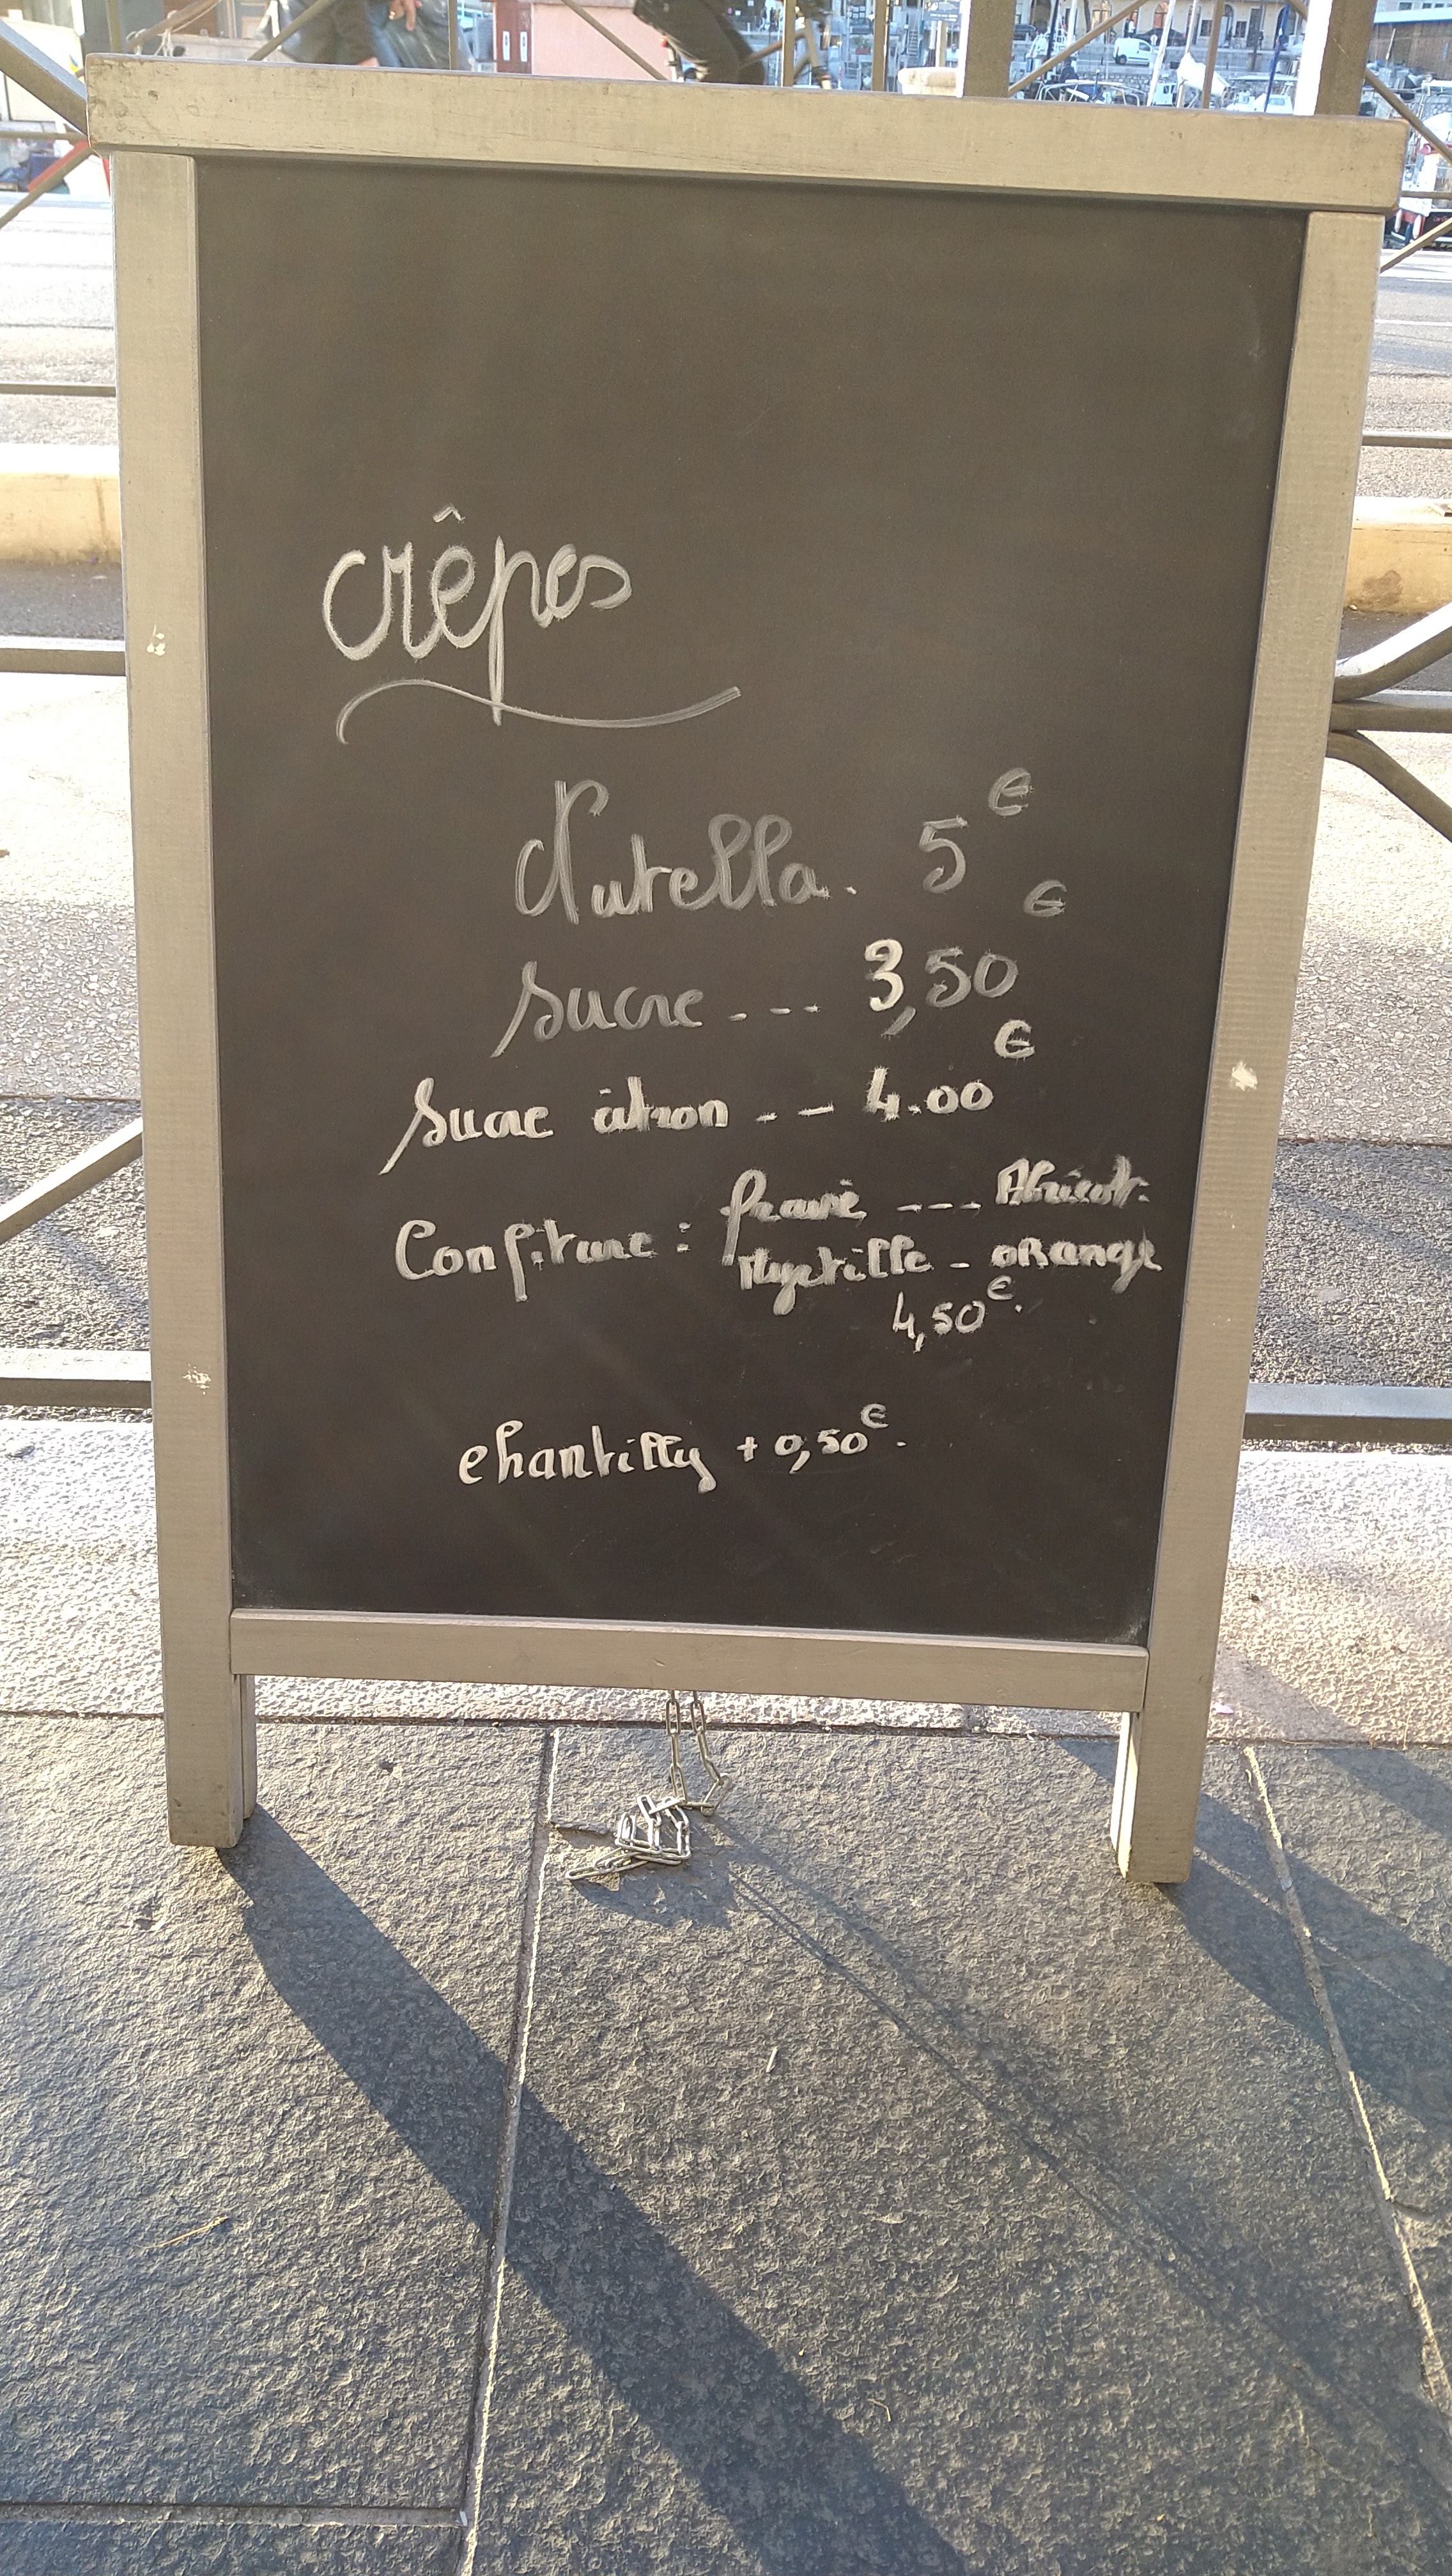 crêpes
Nutella. 5€
sucre ---- 3,50€
Sucre citron -- 4.00€
Confiture : fraise --- Abricot.
Myrtille - orange
4,50€.
chantilly + 0,50€.